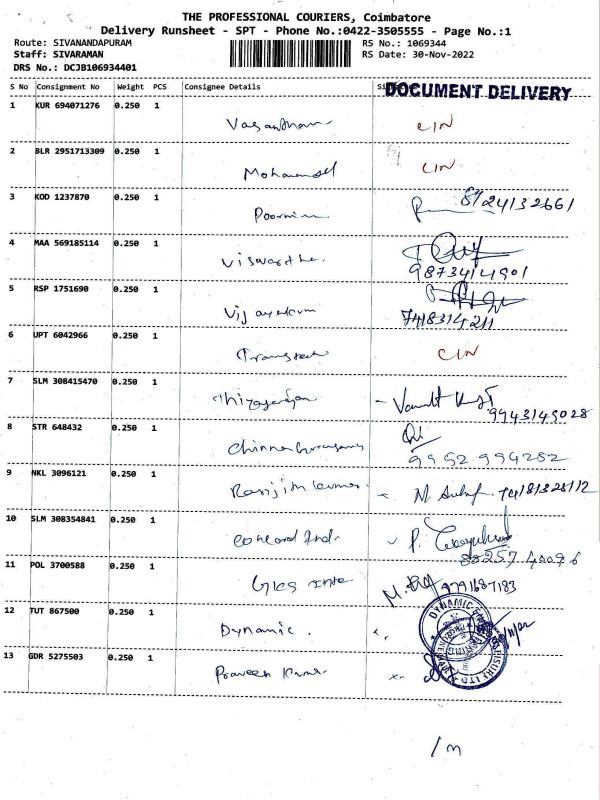 THE PROFESSIONAL COURIERS, Coimbatore
Delivery Runsheet - SPT - Phone No.:0422-3505555 - Page No.:1
Route: SIVANANDAPURAM RS No.: 1069344
Staff: SIVARAMAN RS Date: 30-Nov-2022
DRS No.: DCJB106934401
S No Consignment No Weight PCS Consignee Details
DOCUMENT DELIVERY
1 KUR 694071276 0.250 1 Vasantham
2 BLR 2951713309 0.250 1 Mohammed
3 KOD 1237870 0.250 1 8124132661
4 MAA 569185114 0.250 1
9873414901
5 RSP 1751690 0.250 1
7418314211
6 UPT 6042966 0.250 1
7 SLM 308415470 0.250 1 Thiyagarajan
9943145028
8 STR 648432 0.250 1
9952994252
9 NKL 3096121 0.250 1 Ranjithkumar
10 SLM 308354841 0.250 1 Concord Ind.
11 POL 3700588 0.250 1 9791687183
12 TUT 867500 0.250 1 Dynamic.
DYNAMIC
13 GDR 5275503 0.250 1 Praveen Kumar